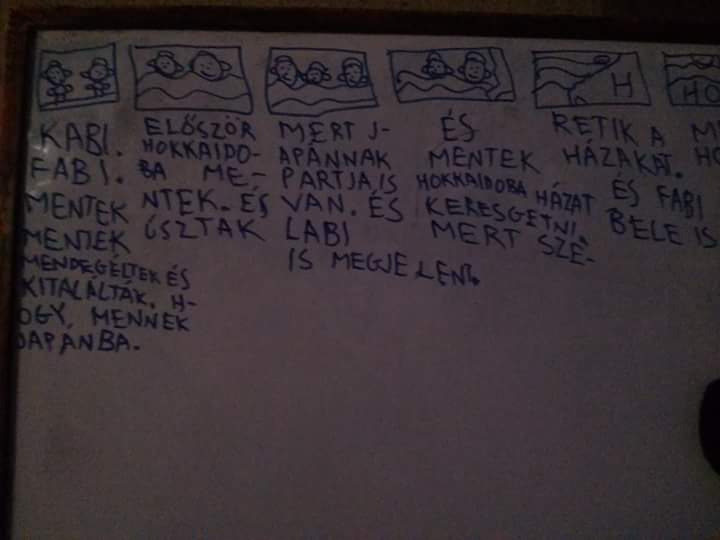 KABI.
FABI.
MENTEK
MENTEK
MENDEGÉLTEK ÉS
KITALÁLTÁK. H-
OGY, MENNEK
JAPÁNBA.
ELŐSZÖR
HOKKAIDO-
BA ME-
NTEK. ÉS
ÚSZTAK
MERT J-
APÁNNAK
PARTJA IS
VAN. ÉS
LABI
IS MEGJELENT.
ÉS
MENTEK
HOKKAIDOBA HÁZAT
KERESGETNI.
MERT SZE-
H
RETIK A
HÁZAKAT.
ÉS FABI
BELE IS
HO
M
HO